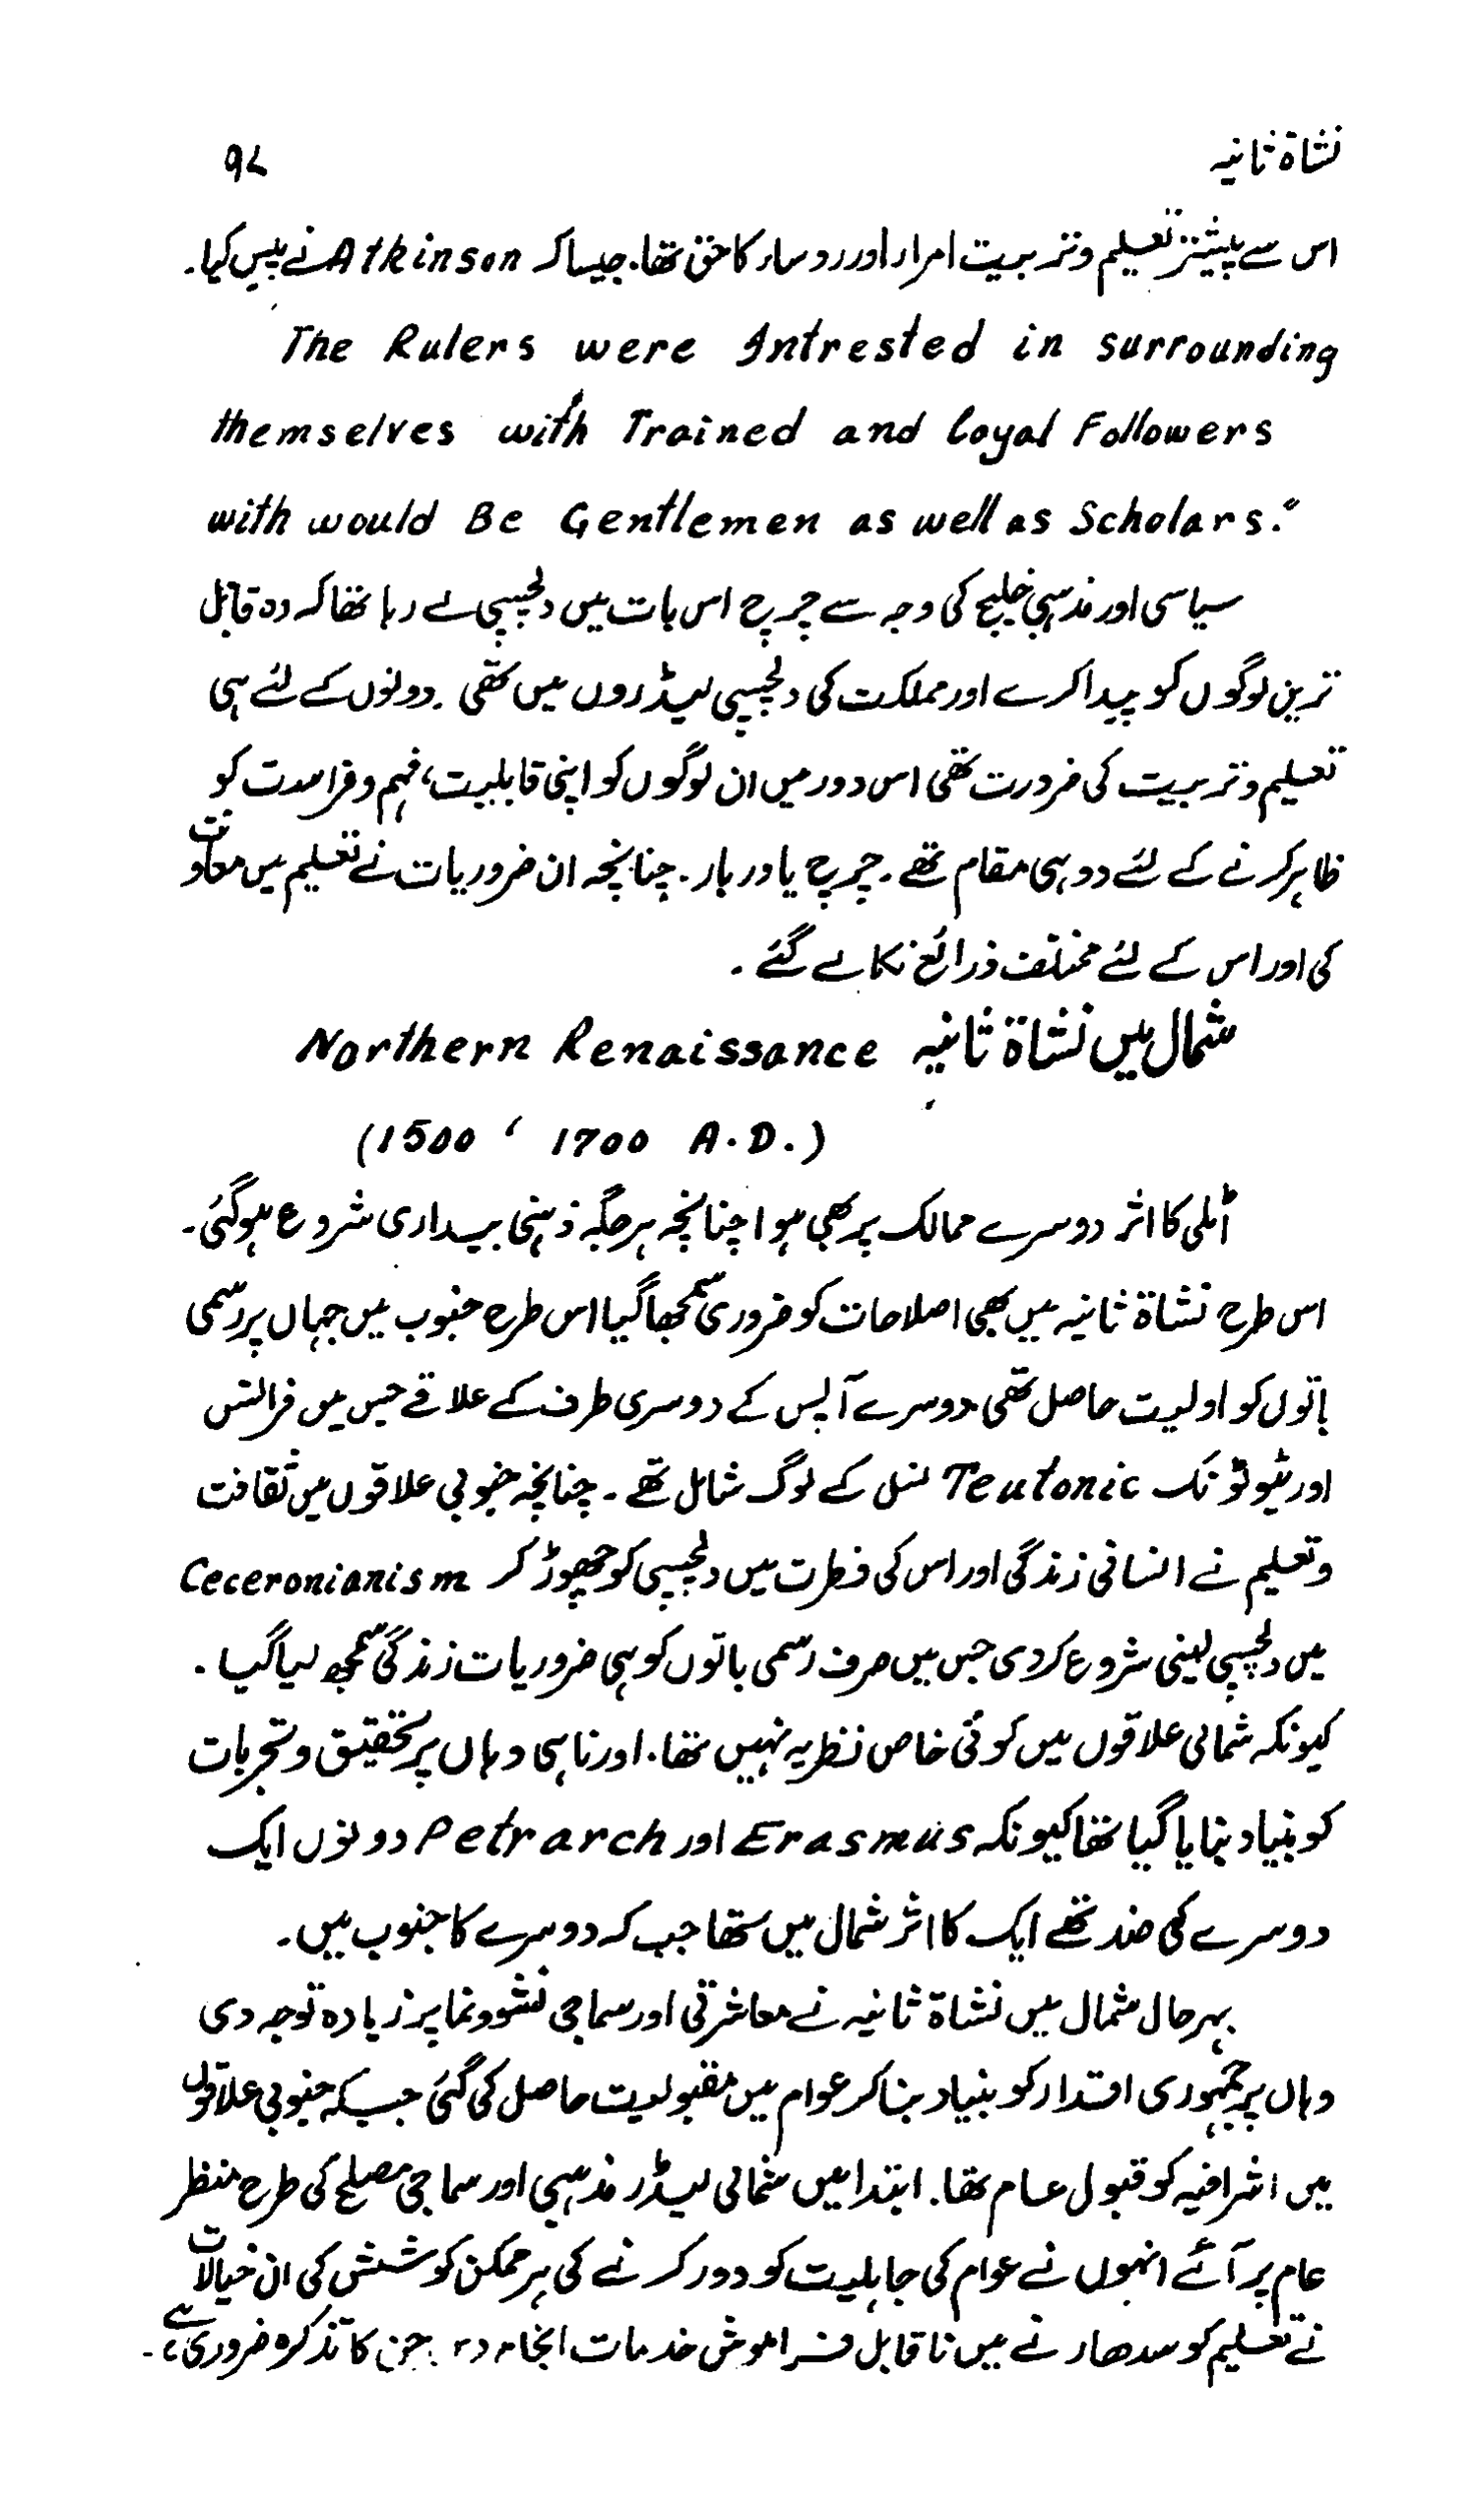 نشاۃ ثانیہ ۹۷
اس سے پیشتر تعلیم و تربیت امرار اور روساء کا حق تھا۔ جیسا کہ Atkinson نے پیس کیا۔
The Rulers were Intrested in surrounding
themselves with Trained and Loyal Followers
with would Be Gentlemen as well as Scholars."
سیاسی اور مذہبی خلیج کی وجہ سے چرچ اس بات میں دلچسپی لے رہا تھا کہ وہ قابل
ترین لوگوں کو پیدا کرے اور مملکت کی دلچسپی لیڈروں میں تھی۔ دونوں کے لئے ہی
تعلیم و تربیت کی ضرورت تھی اس دور میں ان لوگوں کو اپنی قابلیت، فہم و فراست کو
ظاہر کرنے کے لئے دو ہی مقام تھے۔ چرچ یا دربار۔ چنانچہ ان ضروریات نے تعلیم میں معاونت
کی اور اس کے لئے مختلف ذرائع نکالے گئے۔
شمال میں نشاۃ ثانیہ Northern Renaissance
(1500 ، 1700 A.D.)
اٹلی کا اثر دوسرے ممالک پر بھی ہوا چنانچہ ہر جگہ ذہنی بیداری شروع ہو گئی۔
اس طرح نشاۃ ثانیہ میں بھی اصلاحات کو ضروری سمجھا گیا اس طرح جنوب میں جہاں پر رسمی
باتوں کو اولیت حاصل تھی دوسرے آلپس کے دوسری طرف کے علاقے جس میں فرانس
اور ٹیوٹونک Teutonic نسل کے لوگ شامل تھے۔ چنانچہ جنوبی علاقوں میں ثقافت
و تعلیم نے انسانی زندگی اور اس کی فطرت میں دلچسپی کو چھوڑ کر Ceceronianism
میں دلچسپی لینی شروع کر دی جس میں صرف رسمی باتوں کو ہی ضروریات زندگی سمجھ لیا گیا۔
کیونکہ شمالی علاقوں میں کوئی خاص نظریہ نہیں تھا۔ اور نا ہی وہاں پر تحقیق و تجربات
کو بنیاد بنایا گیا تھا کیونکہ Erasmus اور Petrarch دونوں ایک
دوسرے کی ضد تھے ایک کا اثر شمال میں تھا جب کہ دوسرے کا جنوب میں۔
بہرحال شمال میں نشاۃ ثانیہ نے معاشرتی اور سماجی نشوونما پر زیادہ توجہ دی
وہاں پر جمہوری اقتدار کو بنیاد بنا کر عوام میں مقبولیت حاصل کی گئی جب کہ جنوبی علاقوں
میں اشرافیہ کو قبول عام تھا۔ ابتدا میں شمالی لیڈر مذہبی اور سماجی مصلح کی طرح منظر
عام پر آئے انہوں نے عوام کی جاہلیت کو دور کرنے کی ہر ممکن کوشش کی ان خیالات
نے تعلیم کو سدھارنے میں ناقابل فراموش خدمات انجام دیں جن کا تذکرہ ضروری ہے۔